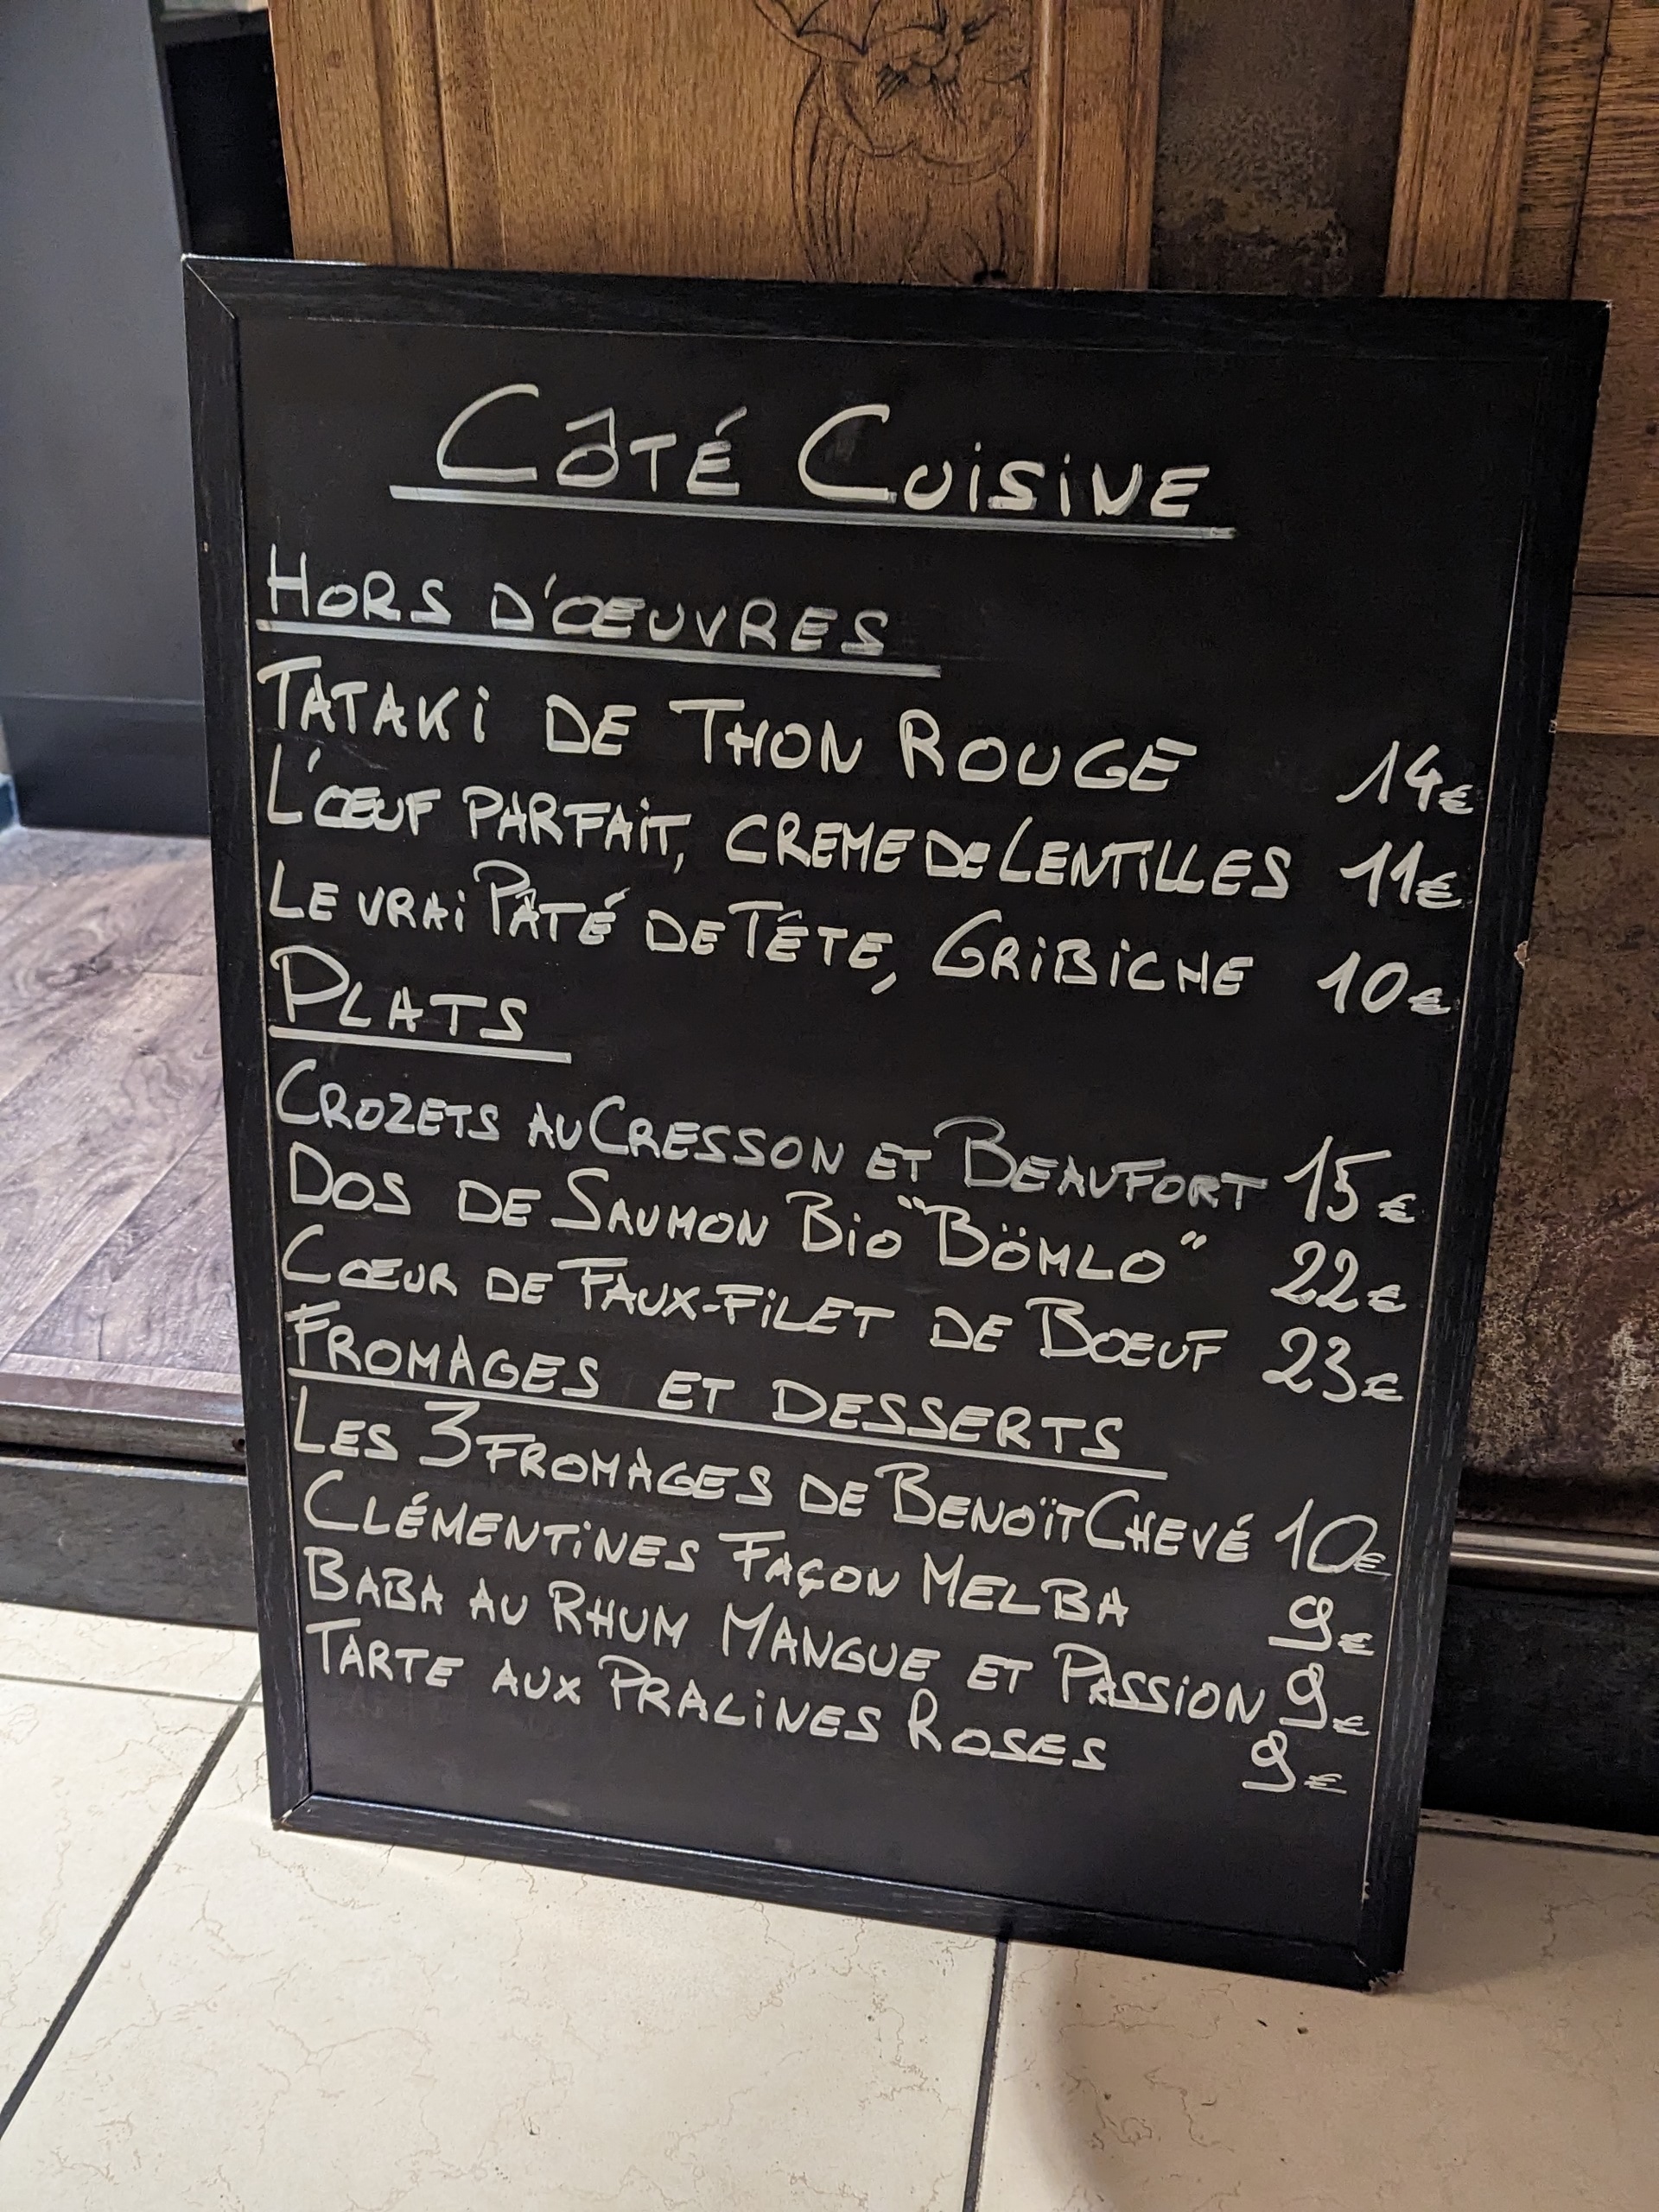 CÔTÉ CUISINE
HORS D'ŒUVRES
TATAKI DE THON ROUGE 14€
L'ŒUF PARFAIT, CREME DE LENTILLES 11€
LE VRAI PÂTÉ DE TÊTE, GRIBICHE 10€
PLATS
CROZETS AU CRESSON ET BEAUFORT 15€
DOS DE SAUMON BIO "BÖMLO" 22€
CŒUR DE FAUX-FILET DE BOEUF 23€
FROMAGES ET DESSERTS
LES 3 FROMAGES DE BENOÏT CHEVÉ 10€
CLÉMENTINES FAÇON MELBA 9€
BABA AU RHUM MANGUE ET PASSION 9€
TARTE AUX PRALINES ROSES 9€